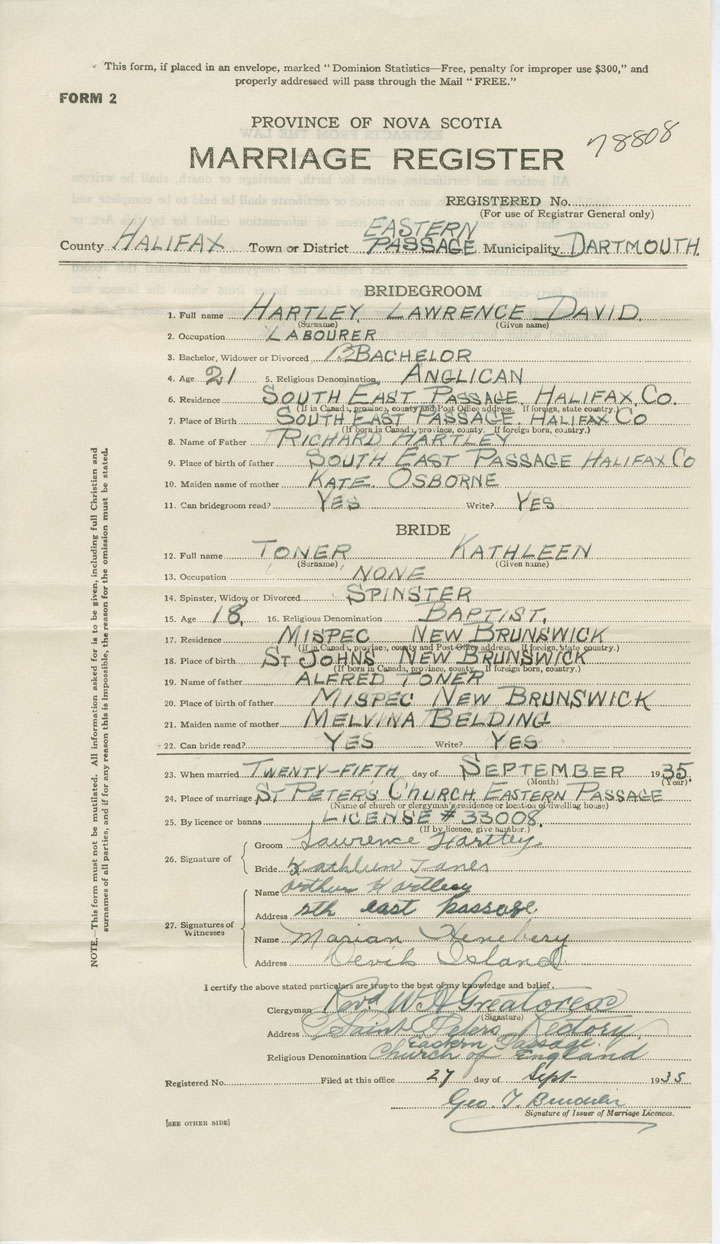 This form, if placed in an envelope, marked "Dominion Statistics—Free, penalty for improper use $300," and
properly addressed will pass through the Mail "FREE."
FORM 2
PROVINCE OF NOVA SCOTIA
78808
MARRIAGE REGISTER
REGISTERED No.
(For use of Registrar General only)
County HALIFAX Town or District EASTERN PASSAGE Municipality DARTMOUTH
BRIDEGROOM
1. Full name HARTLEY LAWRENCE DAVID
(Surname) (Given name)
2. Occupation LABOURER
3. Bachelor, Widower or Divorced BACHELOR
4. Age 21 5. Religious Denomination ANGLICAN
6. Residence SOUTH EAST PASSAGE. HALIFAX CO.
(If in Canada, province, county and Post Office address. If foreign, state country.)
7. Place of Birth SOUTH EAST PASSAGE. HALIFAX CO
(If born in Canada, province, county. If foreign born, country.)
8. Name of Father RICHARD HARTLEY
9. Place of birth of father SOUTH EAST PASSAGE HALIFAX CO
10. Maiden name of mother KATE. OSBORNE
11. Can bridegroom read? YES Write? YES
BRIDE
12. Full name TONER KATHLEEN
(Surname) (Given name)
13. Occupation NONE
14. Spinster, Widow or Divorced SPINSTER
15. Age 18. 16. Religious Denomination BAPTIST.
17. Residence MISPEC NEW BRUNSWICK
(If in Canada, province, county and Post Office address. If foreign, state country.)
18. Place of birth ST JOHNS NEW BRUNSWICK
(If born in Canada, province, county. If foreign born, country.)
19. Name of father ALFRED TONER
20. Place of birth of father MISPEC NEW BRUNSWICK
21. Maiden name of mother MELVINA BELDING
22. Can bride read? YES Write? YES
23. When married TWENTY-FIFTH day of SEPTEMBER 1935.
(Month) (Year)
24. Place of marriage ST PETERS CHURCH EASTERN PASSAGE
(Name of church or clergyman's residence or location of dwelling house)
25. By licence or banns LICENSE # 33008.
(If by licence, give number.)
26. Signature of
Groom Lawrence Hartley
Bride Kathleen
27. Signatures of Witnesses
Name Arthur Hartley
Address Sth east passage.
Name Marian
Address Devils Island
I certify the above stated particulars are true to the best of my knowledge and belief.
Clergyman Revd W. A. Greatorex
(Signature)
Address Saint Peters Rectory
Eastern Passage.
Religious Denomination Church of England
Registered No. Filed at this office 27 day of Sept 1935
Geo. T.
Signature of Issuer of Marriage Licences.
[SEE OTHER SIDE]
NOTE.—This form must not be mutilated. All information asked for is to be given, including full Christian and
surnames of all parties, and if for any reason this is impossible, the reason for the omission must be stated.